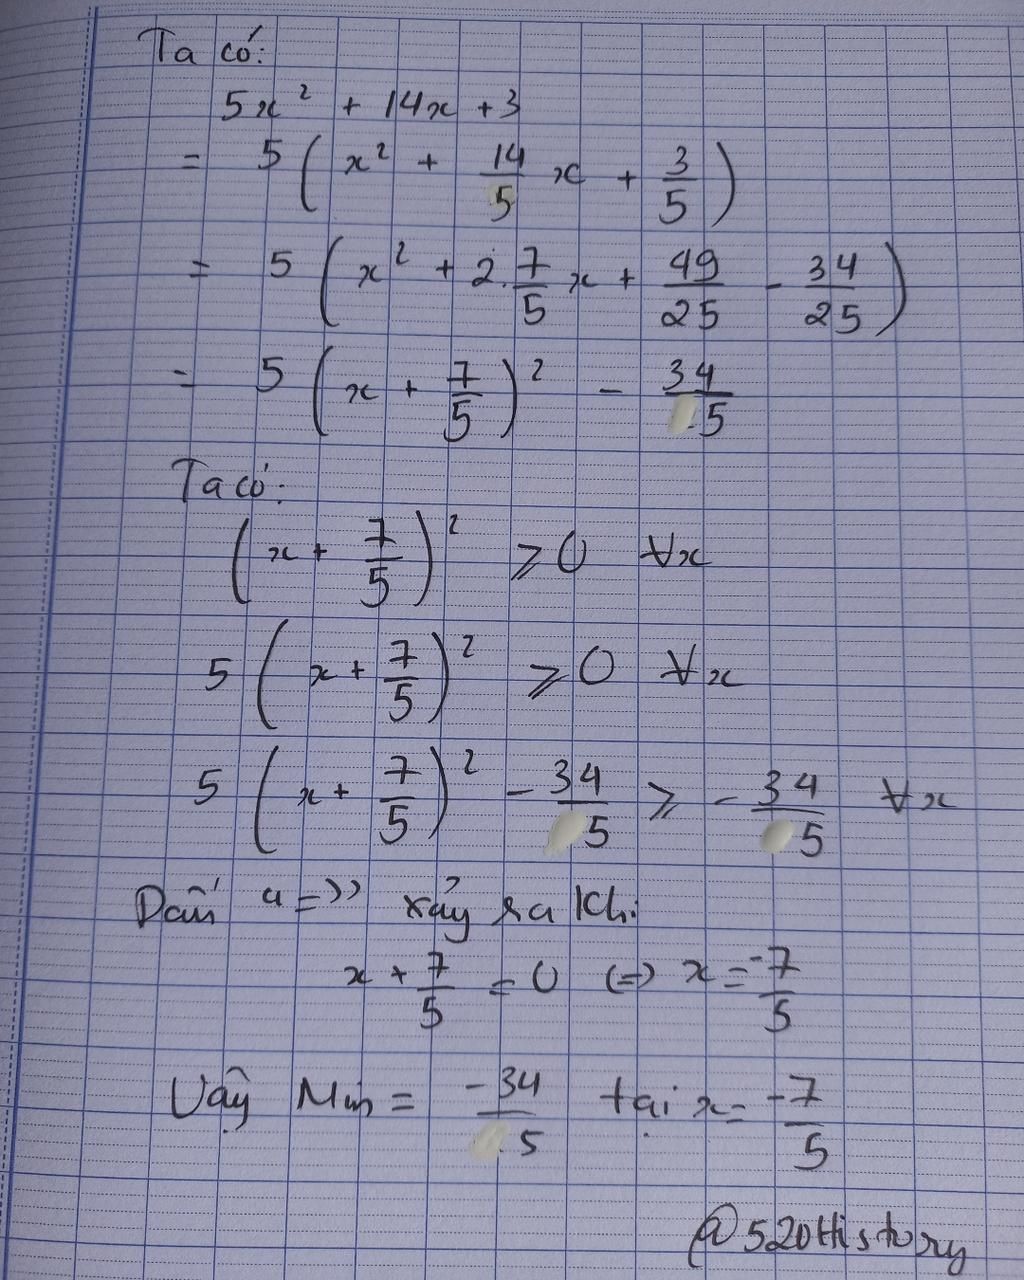 Ta có:
5x² + 14x + 3
= 5 ( x² + 14/5 x + 3/5 )
= 5 ( x² + 2. 7/5 x + 49/25 - 34/25 )
= 5 ( x + 7/5 )² - 34/5
Ta có:
( x + 7/5 )² ⩾ 0 ∀x
5 ( x + 7/5 )² ⩾ 0 ∀x
5 ( x + 7/5 )² - 34/5 ⩾ - 34/5 ∀x
Dấu "=" xảy ra khi
x + 7/5 = 0 (=) x = -7/5
Vậy Min = -34/5 tại x = -7/5
@520History